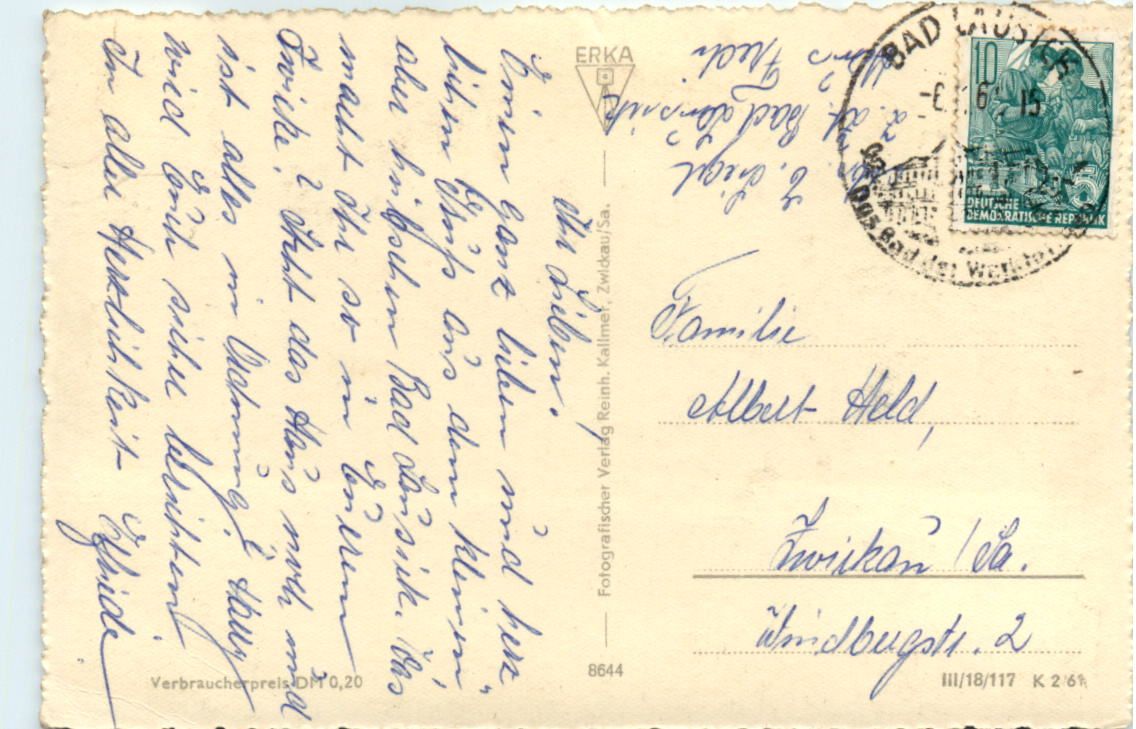 Ihr Lieben!
Einen ganz lieben und herz„
lichen Gruß aus dem kleinen
aber hübschen Bad Lausick. Was
macht Ihr so in Eurem
Zwicke? Steht das Haus noch und
ist alles in Ordnung?
wird Euch sicher berichten
In aller Herzlichkeit Elfriede
Verbraucherpreis DM 0,20
ERKA
Fotografischer Verlag Reinh. Kallmer, Zwickau/Sa.
8644
z. Zt. Bad Lausick
BAD LAUSICK
15
Das Bad der
10
DEUTSCHE
DEMOKRATISCHE REPUBLIK
Familie
Albert Held,
Zwickau/Sa.
Windbergstr. 2
III/18/117 K 2/61